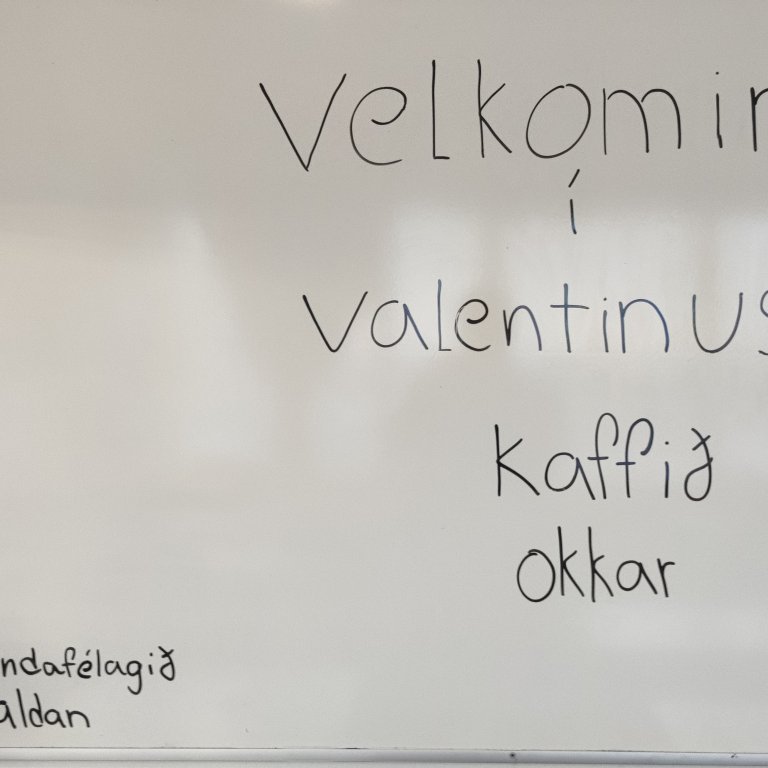 Velkomin
í
Valentinus
Kaffið
okkar
ndafélagið
aldan